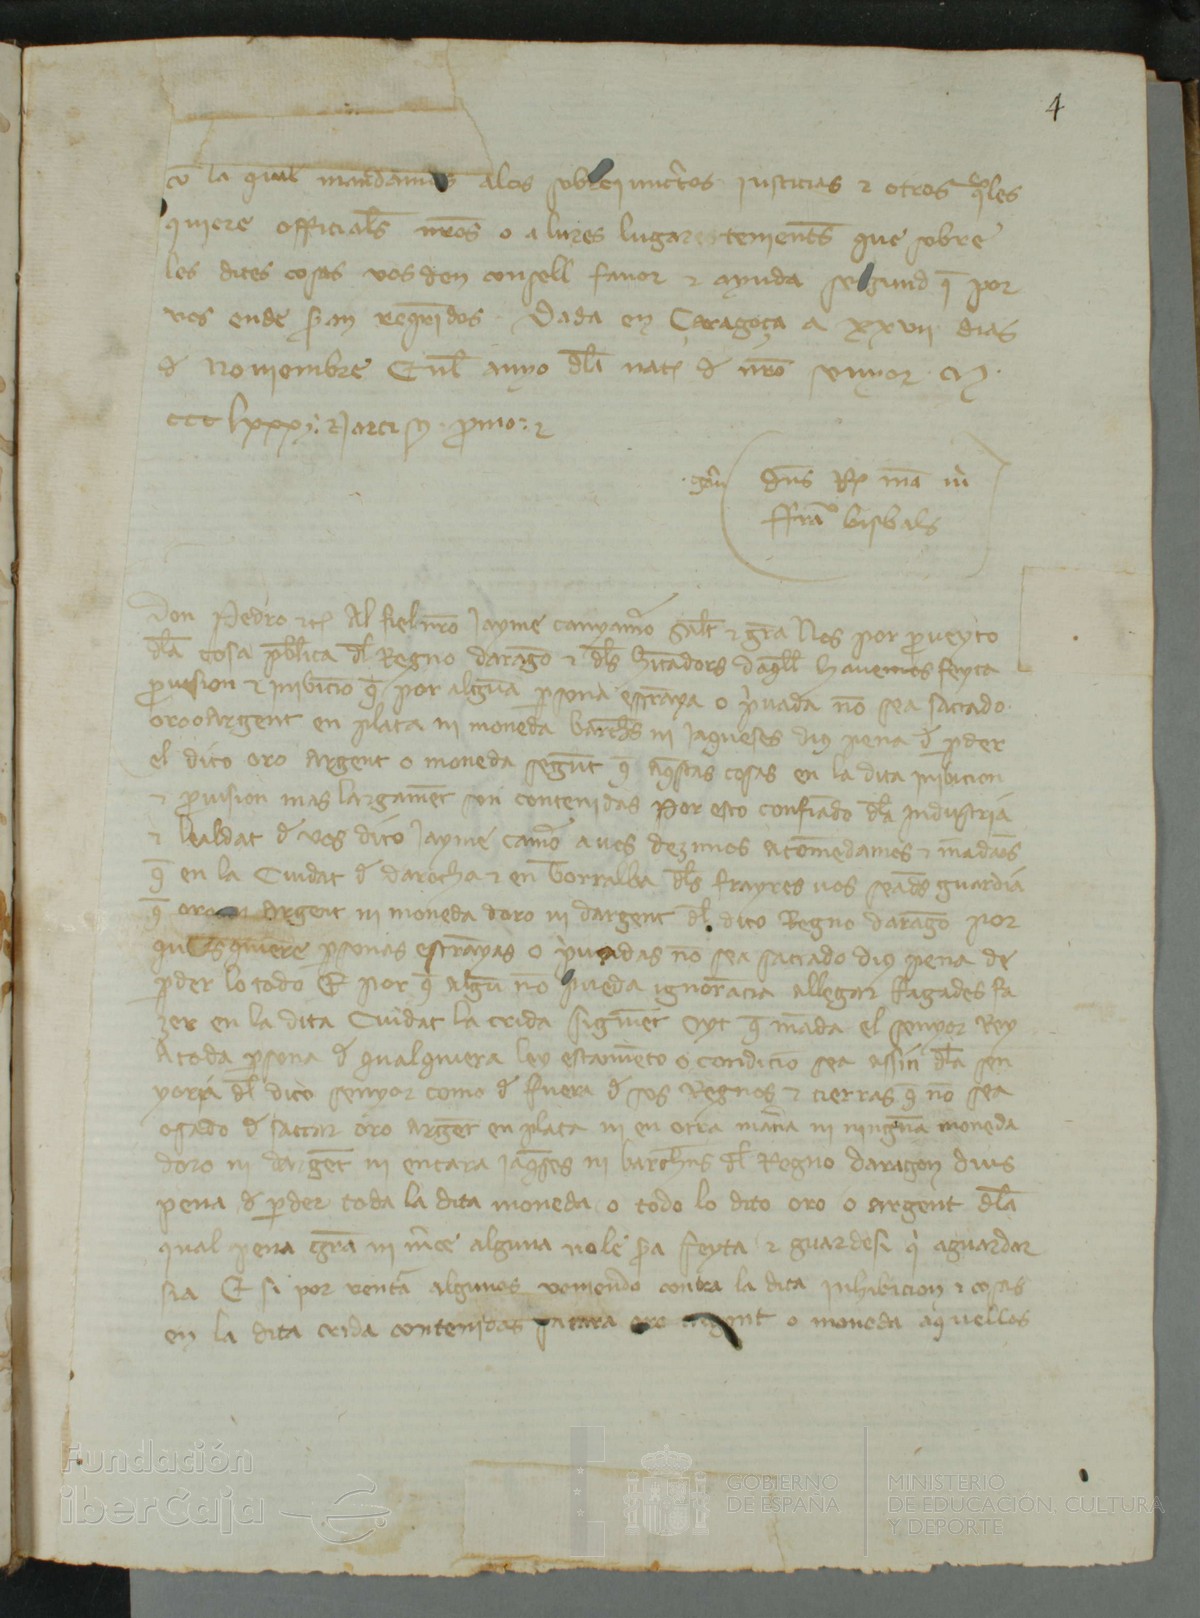 4
co la qual mandamos alos sobrejunct̃os justicias ⁊ otros q̃les
quiere officials̃ nr̃os o a lures lugarestenients̃ que sobre
les dites cosas vos den consell favor ⁊ ayuda segund q̃ por
vos ende s̃an req̃ridos. Dada en Çaragoça a xxvii dias
đ noviembre Enl̃ anyo dl̃a nat đ nr̃o senyor M
ccc lxxx
dñs Rx
ffrã bisbals
Don Pedro Al fiel nr̃o Jayme canyamo Salt̃ ⁊ gr̃a Nos por p̃veyto
dl̃a cosa pbl̃ica dl̃ Regno darago ⁊ dl̃s hitadors daq̃ll havemos feyta
p̃vision ⁊ inibicio q̃ por algũa p̱sona estranya o p̃vada nõ sea saccado
oro o argent en plata ni moneda barch̃s ni jaqueses dius pena đ p̱der
el dito oro argent o moneda segũt q̃ aq̃stas cosas en la dita inibicion
⁊ p̃vision mas largamẽt son contenidas Por esto confiãdo dl̃a industria
⁊ lealdat đ vos dito Jayme cam̃o a vos dezimos acomẽdamos ⁊ mãdãos
q̃ en la Ciudat đ darocha ⁊ en torralba dl̃s frayres vos seads̃ guardia
q̃ oro ni argent ni moneda doro ni dargent dl̃ dito Regno darago por
quals quiere p̱sonas estrãyas o p̃vadas nõ sea saccado dius pena de
p̱der lo todo E por q̃ algũ nõ pueda ignorãcia allegar fagades fa
zer en la dita Ciudat la crida siguiẽt Oyt q̃ mãda el senyor Rey
A toda p̱sona đ qualquiera ley estamẽto o condicio sea assin dl̃a sen
yoria dl̃ dito senyor como đ fuera đ sos Regnos ⁊ tierras q̃ nõ sea
osado đ saccar oro argẽt en plata ni en otra mañra ni ningũa moneda
doro ni dargẽt ni encara jaq̃ses ni barchñs dl̃ Regno daragon dius
pena đ p̱der toda la dita moneda o todo lo dito oro o argent dl̃a
qual pena gr̃a ni m̃ce alguna nole s̃a feyta ⁊ guardesi q̃ aguardar
sia E si por ventã algunos veniendo contra la dita inhibicion ⁊ cosas
en la dita crida contenidas sacara oro argent o moneda aquellos
Fundación
iberCaja
GOBIERNO
DE ESPAÑA
MINISTERIO
DE EDUCACIÓN, CULTURA
Y DEPORTE